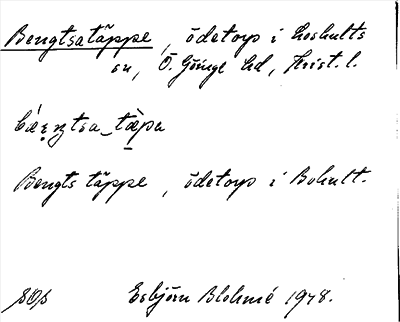 Bengtsatäppe, ödetorp i Loshults
sn, Ö. Göinge hd, Krist. l.
Bengts täppe, ödetorp i Bohult.
Esbjörn Blohmé 1948.